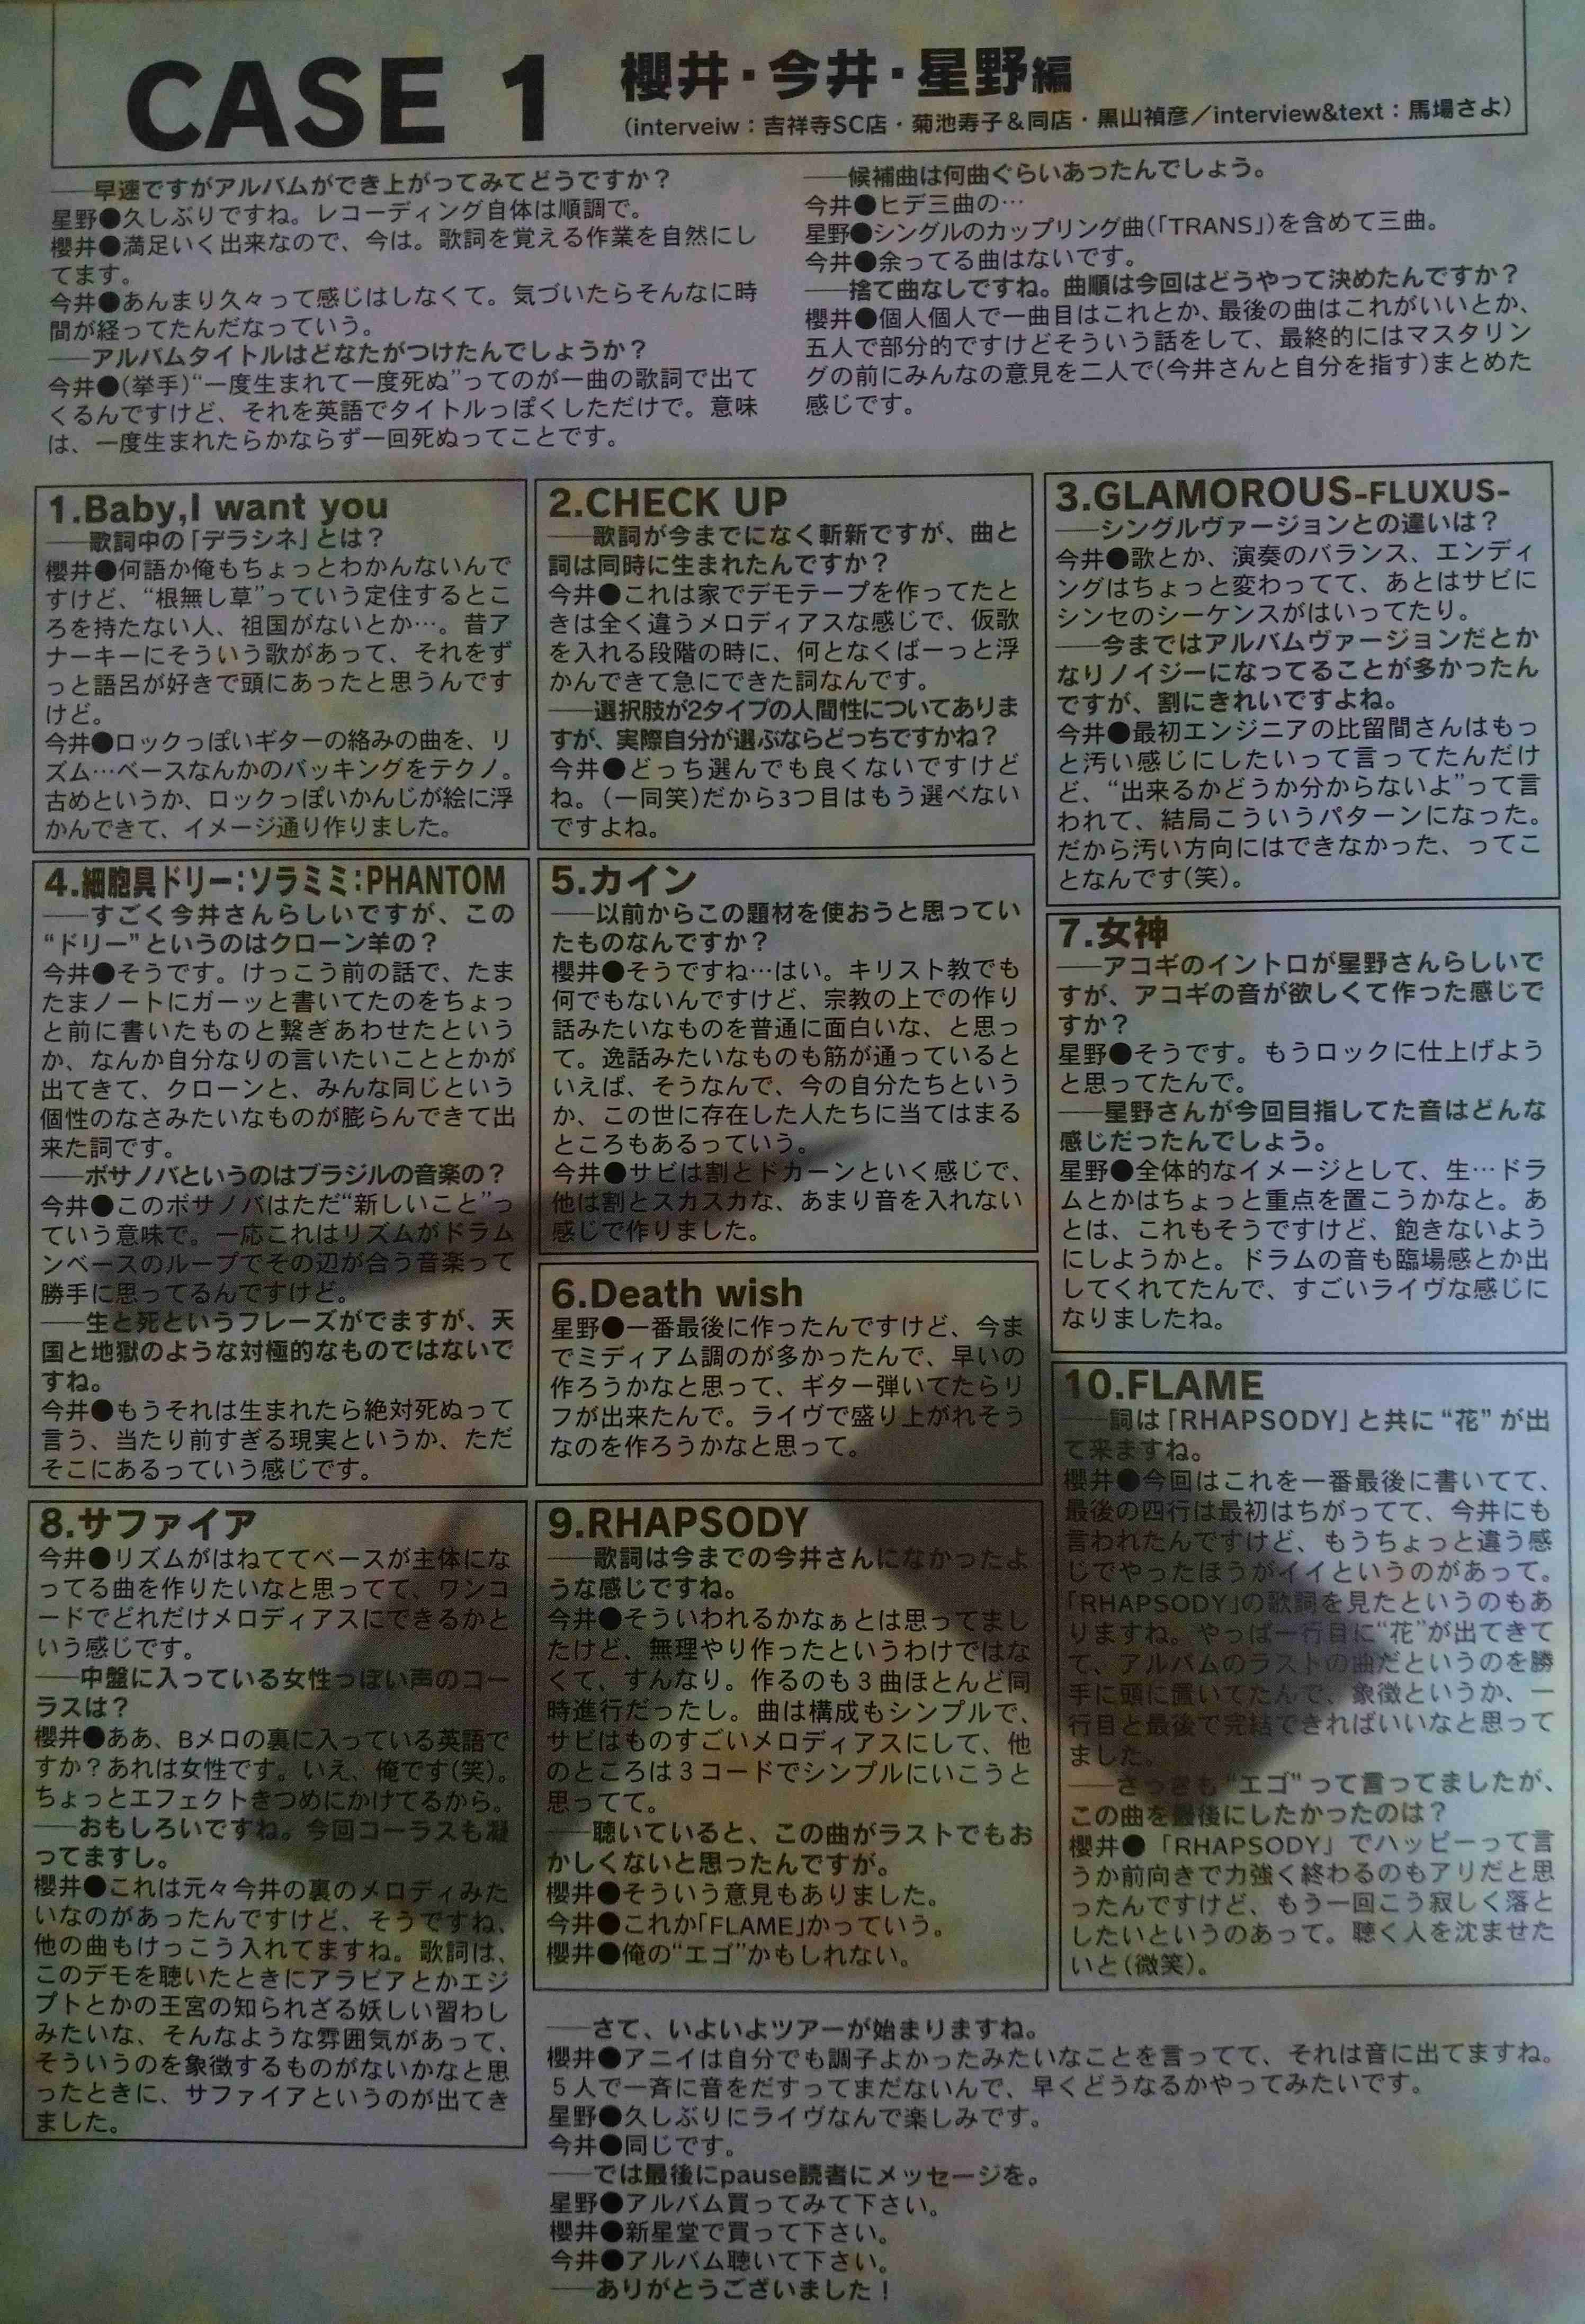 CASE 1
櫻井・今井・星野編
(interveiw：吉祥寺SC店・菊池寿子＆同店・黒山禎彦／interview&text：馬場さよ)
――早速ですがアルバムができ上がってみてどうですか？
星野●久しぶりですね。レコーディング自体は順調で。
櫻井●満足いく出来なので、今は。歌詞を覚える作業を自然にし
てます。
今井●あんまり久々って感じはしなくて。気づいたらそんなに時
間が経ってたんだなっていう。
――アルバムタイトルはどなたがつけたんでしょうか？
今井●(挙手)“一度生まれて一度死ぬ”ってのが一曲の歌詞で出て
くるんですけど、それを英語でタイトルっぽくしただけで。意味
は、一度生まれたらかならず一回死ぬってことです。
――候補曲は何曲ぐらいあったんでしょう。
今井●ヒデ三曲の…
星野●シングルのカップリング曲(「TRANS」)を含めて三曲。
今井●余ってる曲はないです。
――捨て曲なしですね。曲順は今回はどうやって決めたんですか？
櫻井●個人個人で一曲目はこれとか、最後の曲はこれがいいとか、
五人で部分的ですけどそういう話をして、最終的にはマスタリン
グの前にみんなの意見を二人で(今井さんと自分を指す)まとめた
感じです。
1.Baby,I want you
――歌詞中の「デラシネ」とは？
櫻井●何語か俺もちょっとわかんないんで
すけど、“根無し草”っていう定住するとこ
ろを持たない人、祖国がないとか…。昔ア
ナーキーにそういう歌があって、それをず
っと語呂が好きで頭にあったと思うんです
けど。
今井●ロックっぽいギターの絡みの曲を、リ
ズム…ベースなんかのバッキングをテクノ。
古めというか、ロックっぽいかんじが絵に浮
かんできて、イメージ通り作りました。
2.CHECK UP
――歌詞が今までになく斬新ですが、曲と
詞は同時に生まれたんですか？
今井●これは家でデモテープを作ってたと
きは全く違うメロディアスな感じで、仮歌
を入れる段階の時に、何となくばーっと浮
かんできて急にできた詞なんです。
――選択肢が2タイプの人間性についてありま
すが、実際自分が選ぶならどっちですかね？
今井●どっち選んでも良くないですけど
ね。(一同笑)だから3つ目はもう選べない
ですよね。
3.GLAMOROUS-FLUXUS-
――シングルヴァージョンとの違いは？
今井●歌とか、演奏のバランス、エンディ
ングはちょっと変わってて、あとはサビに
シンセのシーケンスがはいってたり。
――今まではアルバムヴァージョンだとか
なりノイジーになってることが多かったん
ですが、割にきれいですよね。
今井●最初エンジニアの比留間さんはもっ
と汚い感じにしたいって言ってたんだけ
ど、“出来るかどうか分からないよ”って言
われて、結局こういうパターンになった。
だから汚い方向にはできなかった、ってこ
となんです(笑)。
4.細胞具ドリー：ソラミミ：PHANTOM
――すごく今井さんらしいですが、この
“ドリー”というのはクローン羊の？
今井●そうです。けっこう前の話で、たま
たまノートにガーッと書いてたのをちょっ
と前に書いたものと繋ぎあわせたという
か、なんか自分なりの言いたいこととかが
出てきて、クローンと、みんな同じという
個性のなさみたいなものが膨らんできて出
来た詞です。
――ボサノバというのはブラジルの音楽の？
今井●このボサノバはただ“新しいこと”っ
ていう意味で。一応これはリズムがドラム
ンベースのループでその辺が合う音楽って
勝手に思ってるんですけど。
――生と死というフレーズがでますが、天
国と地獄のような対極的なものではないで
すね。
今井●もうそれは生まれたら絶対死ぬって
言う、当たり前すぎる現実というか、ただ
そこにあるっていう感じです。
5.カイン
――以前からこの題材を使おうと思ってい
たものなんですか？
櫻井●そうですね…はい。キリスト教でも
何でもないんですけど、宗教の上での作り
話みたいなものを普通に面白いな、と思っ
て。逸話みたいなものも筋が通っていると
いえば、そうなんで、今の自分たちという
か、この世に存在した人たちに当てはまる
ところもあるっていう。
今井●サビは割とドカーンといく感じで、
他は割とスカスカな、あまり音を入れない
感じで作りました。
6.Death wish
星野●一番最後に作ったんですけど、今ま
でミディアム調のが多かったんで、早いの
作ろうかなと思って、ギター弾いてたらリ
フが出来たんで。ライヴで盛り上がれそう
なのを作ろうかなと思って。
7.女神
――アコギのイントロが星野さんらしいで
すが、アコギの音が欲しくて作った感じで
すか？
星野●そうです。もうロックに仕上げよう
と思ってたんで。
――星野さんが今回目指してた音はどんな
感じだったんでしょう。
星野●全体的なイメージとして、生…ドラ
ムとかはちょっと重点を置こうかなと。あ
とは、これもそうですけど、飽きないよう
にしようかと。ドラムの音も臨場感とか出
してくれてたんで、すごいライヴな感じに
なりましたね。
8.サファイア
今井●リズムがはねててベースが主体にな
ってる曲を作りたいなと思ってて、ワンコ
ードでどれだけメロディアスにできるかと
いう感じです。
――中盤に入っている女性っぽい声のコー
ラスは？
櫻井●ああ、Bメロの裏に入っている英語で
すか？あれは女性です。いえ、俺です(笑)。
ちょっとエフェクトきつめにかけてるから。
――おもしろいですね。今回コーラスも凝
ってますし。
櫻井●これは元々今井の裏のメロディみた
いなのがあったんですけど、そうですね、
他の曲もけっこう入れてますね。歌詞は、
このデモを聴いたときにアラビアとかエジ
プトとかの王宮の知られざる妖しい習わし
みたいな、そんなような雰囲気があって、
そういうのを象徴するものがないかなと思
ったときに、サファイアというのが出てき
ました。
9.RHAPSODY
――歌詞は今までの今井さんになかったよ
うな感じですね。
今井●そういわれるかなぁとは思ってまし
たけど、無理やり作ったというわけではな
くて、すんなり。作るのも3曲ほとんど同
時進行だったし。曲は構成もシンプルで、
サビはものすごいメロディアスにして、他
のところは3コードでシンプルにいこうと
思ってて。
――聴いていると、この曲がラストでもお
かしくないと思ったんですが。
櫻井●そういう意見もありました。
今井●これか「FLAME」かっていう。
櫻井●俺の“エゴ”かもしれない。
10.FLAME
――詞は「RHAPSODY」と共に“花”が出
て来ますね。
櫻井●今回はこれを一番最後に書いてて、
最後の四行は最初はちがってて、今井にも
言われたんですけど、もうちょっと違う感
じでやったほうがイイというのがあって。
「RHAPSODY」の歌詞を見たというのもあ
りますね。やっぱ一行目に“花”が出てきて
て、アルバムのラストの曲だというのを勝
手に頭に置いてたんで、象徴というか、一
行目と最後で完結できればいいなと思って
ました。
――さっきも“エゴ”って言ってましたが、
この曲を最後にしたかったのは？
櫻井●「RHAPSODY」でハッピーって言
うか前向きで力強く終わるのもアリだと思
ったんですけど、もう一回こう寂しく落と
したいというのあって。聴く人を沈ませた
いと(微笑)。
――さて、いよいよツアーが始まりますね。
櫻井●アニイは自分でも調子よかったみたいなことを言ってて、それは音に出てますね。
5人で一斉に音をだすってまだないんで、早くどうなるかやってみたいです。
星野●久しぶりにライヴなんで楽しみです。
今井●同じです。
――では最後にpause読者にメッセージを。
星野●アルバム買ってみて下さい。
櫻井●新星堂で買って下さい。
今井●アルバム聴いて下さい。
――ありがとうございました！